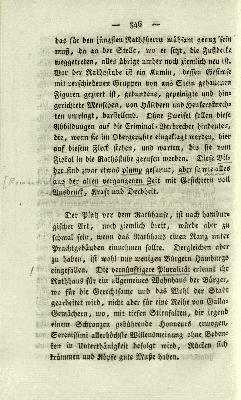 — 346 —
das für den jüngsten Rathsherrn währen genug seyn
muß, da an der Stelle, wo er sitzt, die Fußdecke
weggetreten, alles übrige aber noch ziemlich neu ist.
Vor der Rathsstube ist ein Kamin, dessen Gesimse
mit verschiedenen Gruppen von aus Stein gehauenen
Figuren geziert ist, gebundene, gepeinigte und hin-
gerichtete Menschen, von Häschern und Henkersknech-
ten umringt, darstellend. Ohne Zweifel sollen diese
Abbildungen auf die Criminal-Verbrecher hindeuten,
die, wenn sie im Obergerichte eingeklagt werden, hier
auf diesem Fleck stehen, und warten, bis sie vom
Fiskal in die Rathsstube gerufen werden. Diese Bil-
der sind zwar etwas plump geformt, aber sie wie alles
aus der alten vergangenen Zeit mit Gesichtern voll
Ausdruck, Kraft und Derbheit.
Der Platz vor dem Rathhause, ist nach hambur-
gischer Art, noch ziemlich breit, würde aber zu
schmal seyn, wenn das Rathhaus einen Rang unter
Prachtgebäuden einnehmen sollte. Dergleichen aber
zu haben, ist wohl nur wenigen Bürgern Hamburgs
eingefallen. Die vernünftigere Pluralität erkennt ihr
Rathhaus für ein allgemeines Wohnhaus der Bürger,
wo für die Gerechtsame und das Wohl der Stadt
gearbeitet wird, nicht aber für eine Reihe von Galla-
Gemächern, wo, mit tiefen Stirnfalten, die irgend
einem Schranzen gebührende Honneurs erwogen,
Serenissimi allerhöchste Willensmeinung ohne Beden-
ken in Unterthänigkeit befolgt wird, Rücken sich
krümmen und Köpfe gute Masse haben.